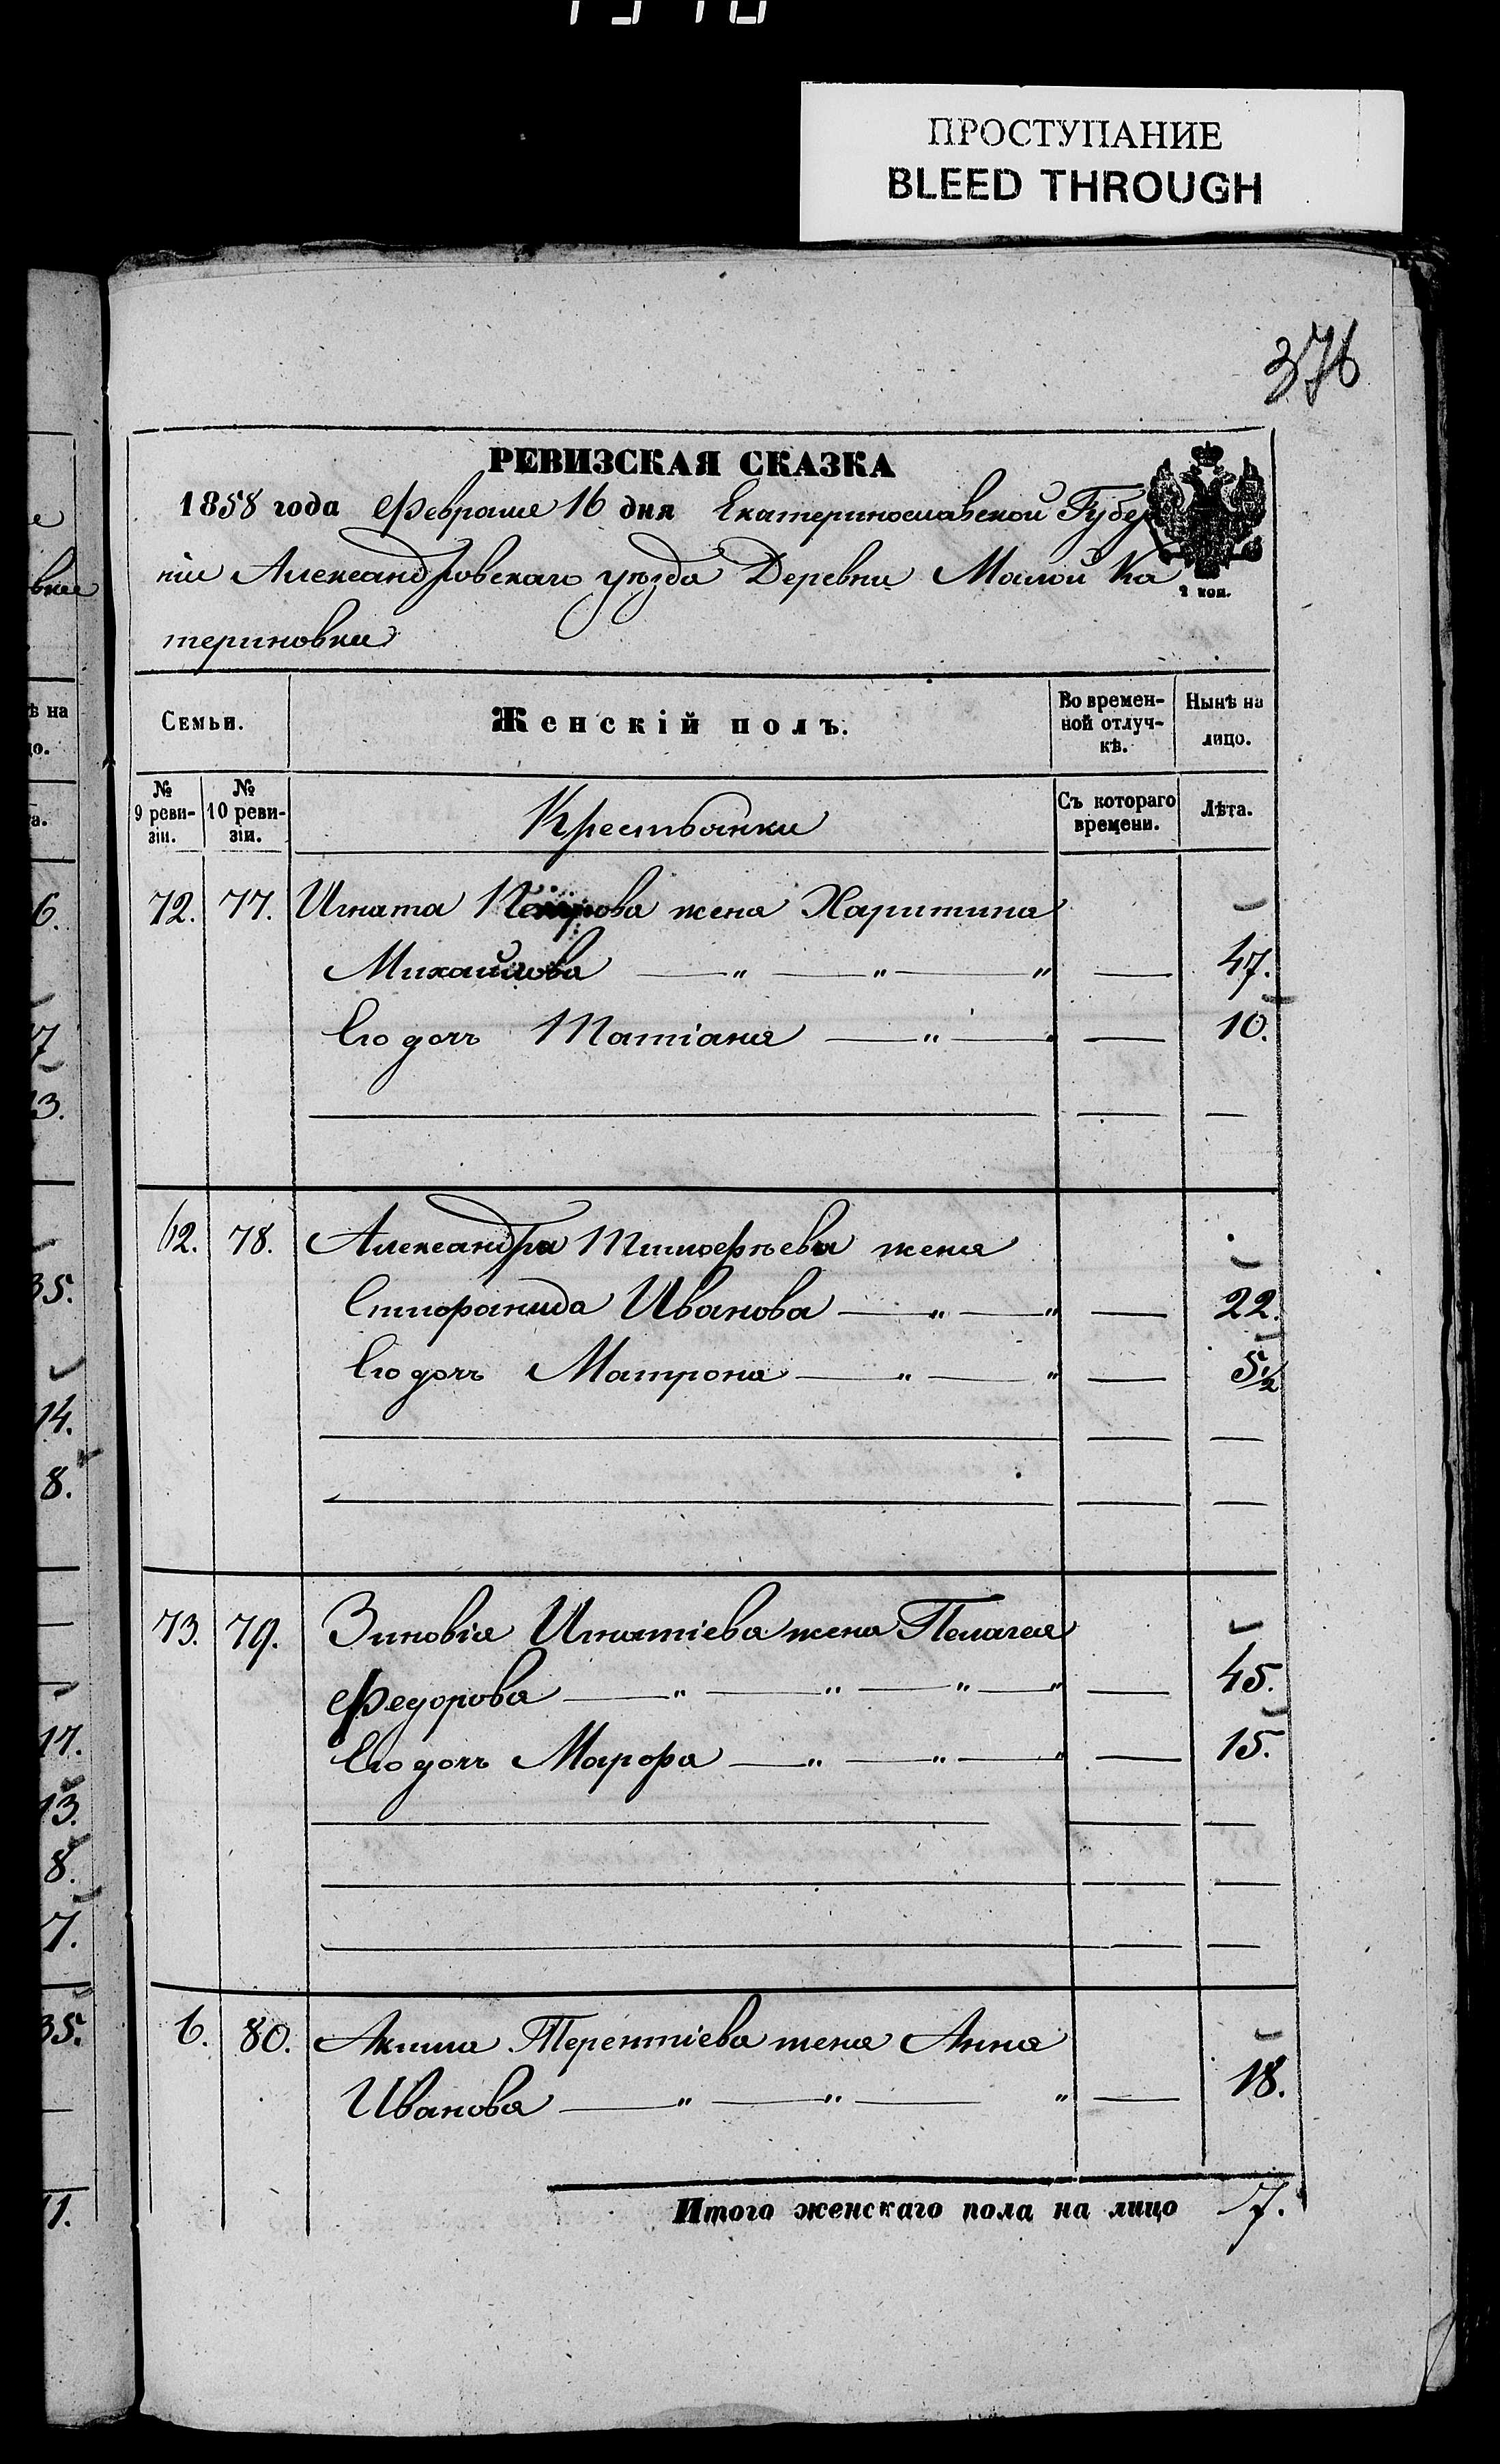 ПРОСТУПАНИЕ
BLEED THROUGH
376
РЕВИЗСКАЯ СКАЗКА
1858 года Февраля 16 дня Екатеринославской Губер
ніи Александровскаго уѣзда Деревни Малой Ка
териновки
2 коп.
Семьи. Женскій полъ. Во времен-ной отлуч-кѣ. Нынѣ на лицо.
№ 9 реви-зіи. № 10 реви-зіи. Крестьянки Съ котораго времени. Лѣта.
72. 77. Игната Петрова жена Харитина
Михайлова — „ — „ — „ — 47.
Его дочь Татіана — „ — „ — 10.
62. 78. Александра Тимофѣева жена
Епистимида Иванова — „ — „ — 22.
Его дочь Матрона — „ — „ — 5½
73. 79. Зиновія Игнатіева жена Пелагея
Федорова — „ — „ — „ — „ — 45.
Его дочь Марфа — „ — „ — „ — 15.
6. 80. Акима Терентіева жена Анна
Иванова — „ — „ — „ — 18.
Итого женскаго пола на лицо 7.